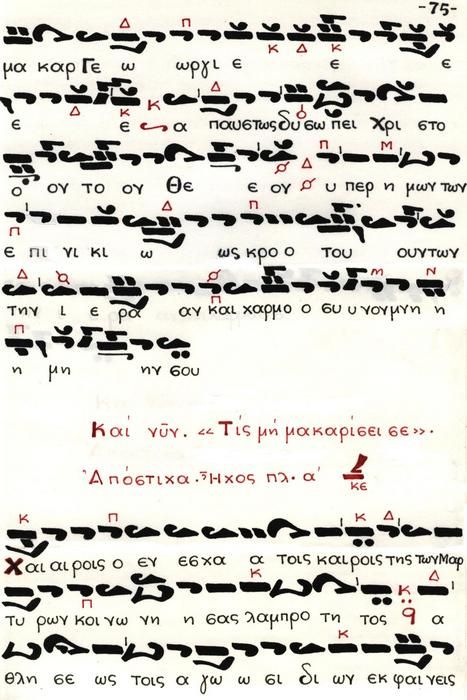 -75-
μα καρ Γε ω ωργι ε ε ε
ε ε α παυστως δυ σω πει Χρι στο
ο ου το ου Θε ε ου υ περ η μων των
ε πι νι κι ω ως κρο ο του ουντων
την ι ε ρα αν και χαρμο ο συ υ νον μνη η
η μη ην σου
Καί νῦν. «Τίς μή μακαρίσει σε».
Ἀπόστιχα. Ἦχος πλ. α΄ κε
Χαι αι ροις ο εν εσχα α τοις και ροις της των Μαρ
τυ ρων κοι νω νη η σας λαμπρο τη τος α
θλη σε ως τοις α γω ω σι δι ων εκ φαι νεις